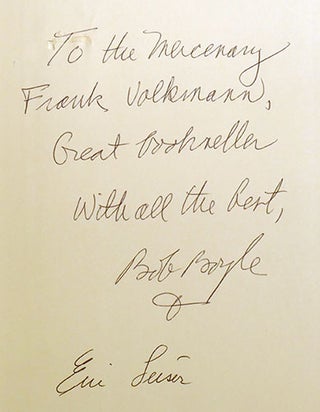 To the mercenary
Frank Volkmann,
Great bookseller
With all the best,
Bob Boyle
Eric Leiser